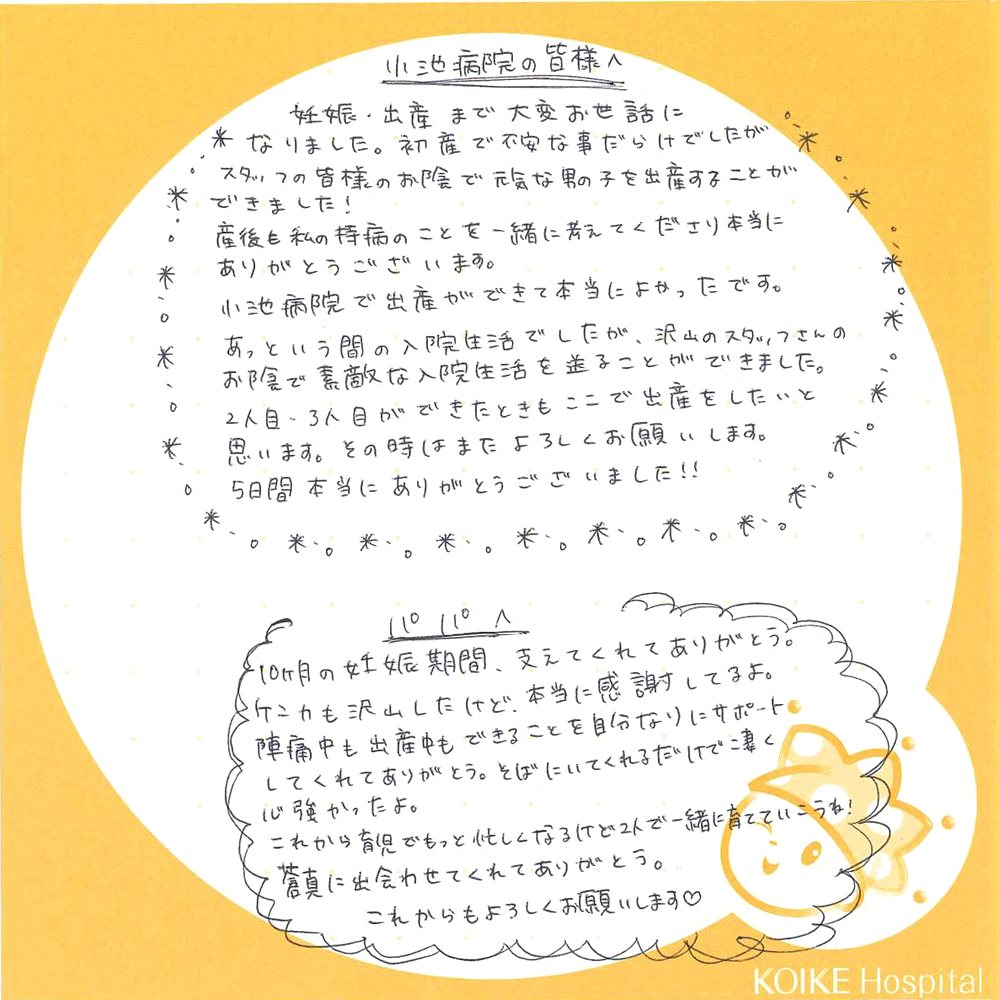 小池病院の皆様へ
妊娠・出産まで大変お世話に
なりました。初産で不安な事だらけでしたが
スタッフの皆様のお陰で元気な男の子を出産することが
できました！
産後も私の持病のことを一緒に考えてくださり本当に
ありがとうございます。
小池病院で出産ができて本当によかったです。
あっという間の入院生活でしたが、沢山のスタッフさんの
お陰で素敵な入院生活を送ることができました。
2人目・3人目ができたときもここで出産をしたいと
思います。その時はまたよろしくお願いします。
5日間本当にありがとうございました!!
パパへ
10ヶ月の妊娠期間、支えてくれてありがとう。
ケンカも沢山したけど、本当に感謝してるよ。
陣痛中も出産中もできることを自分なりにサポート
してくれてありがとう。そばにいてくれるだけで凄く
心強かったよ。
これから育児でもっと忙しくなるけど2人で一緒に育てていこうね！
蒼真に出会わせてくれてありがとう。
これからもよろしくお願いします♡
KOIKE Hospital